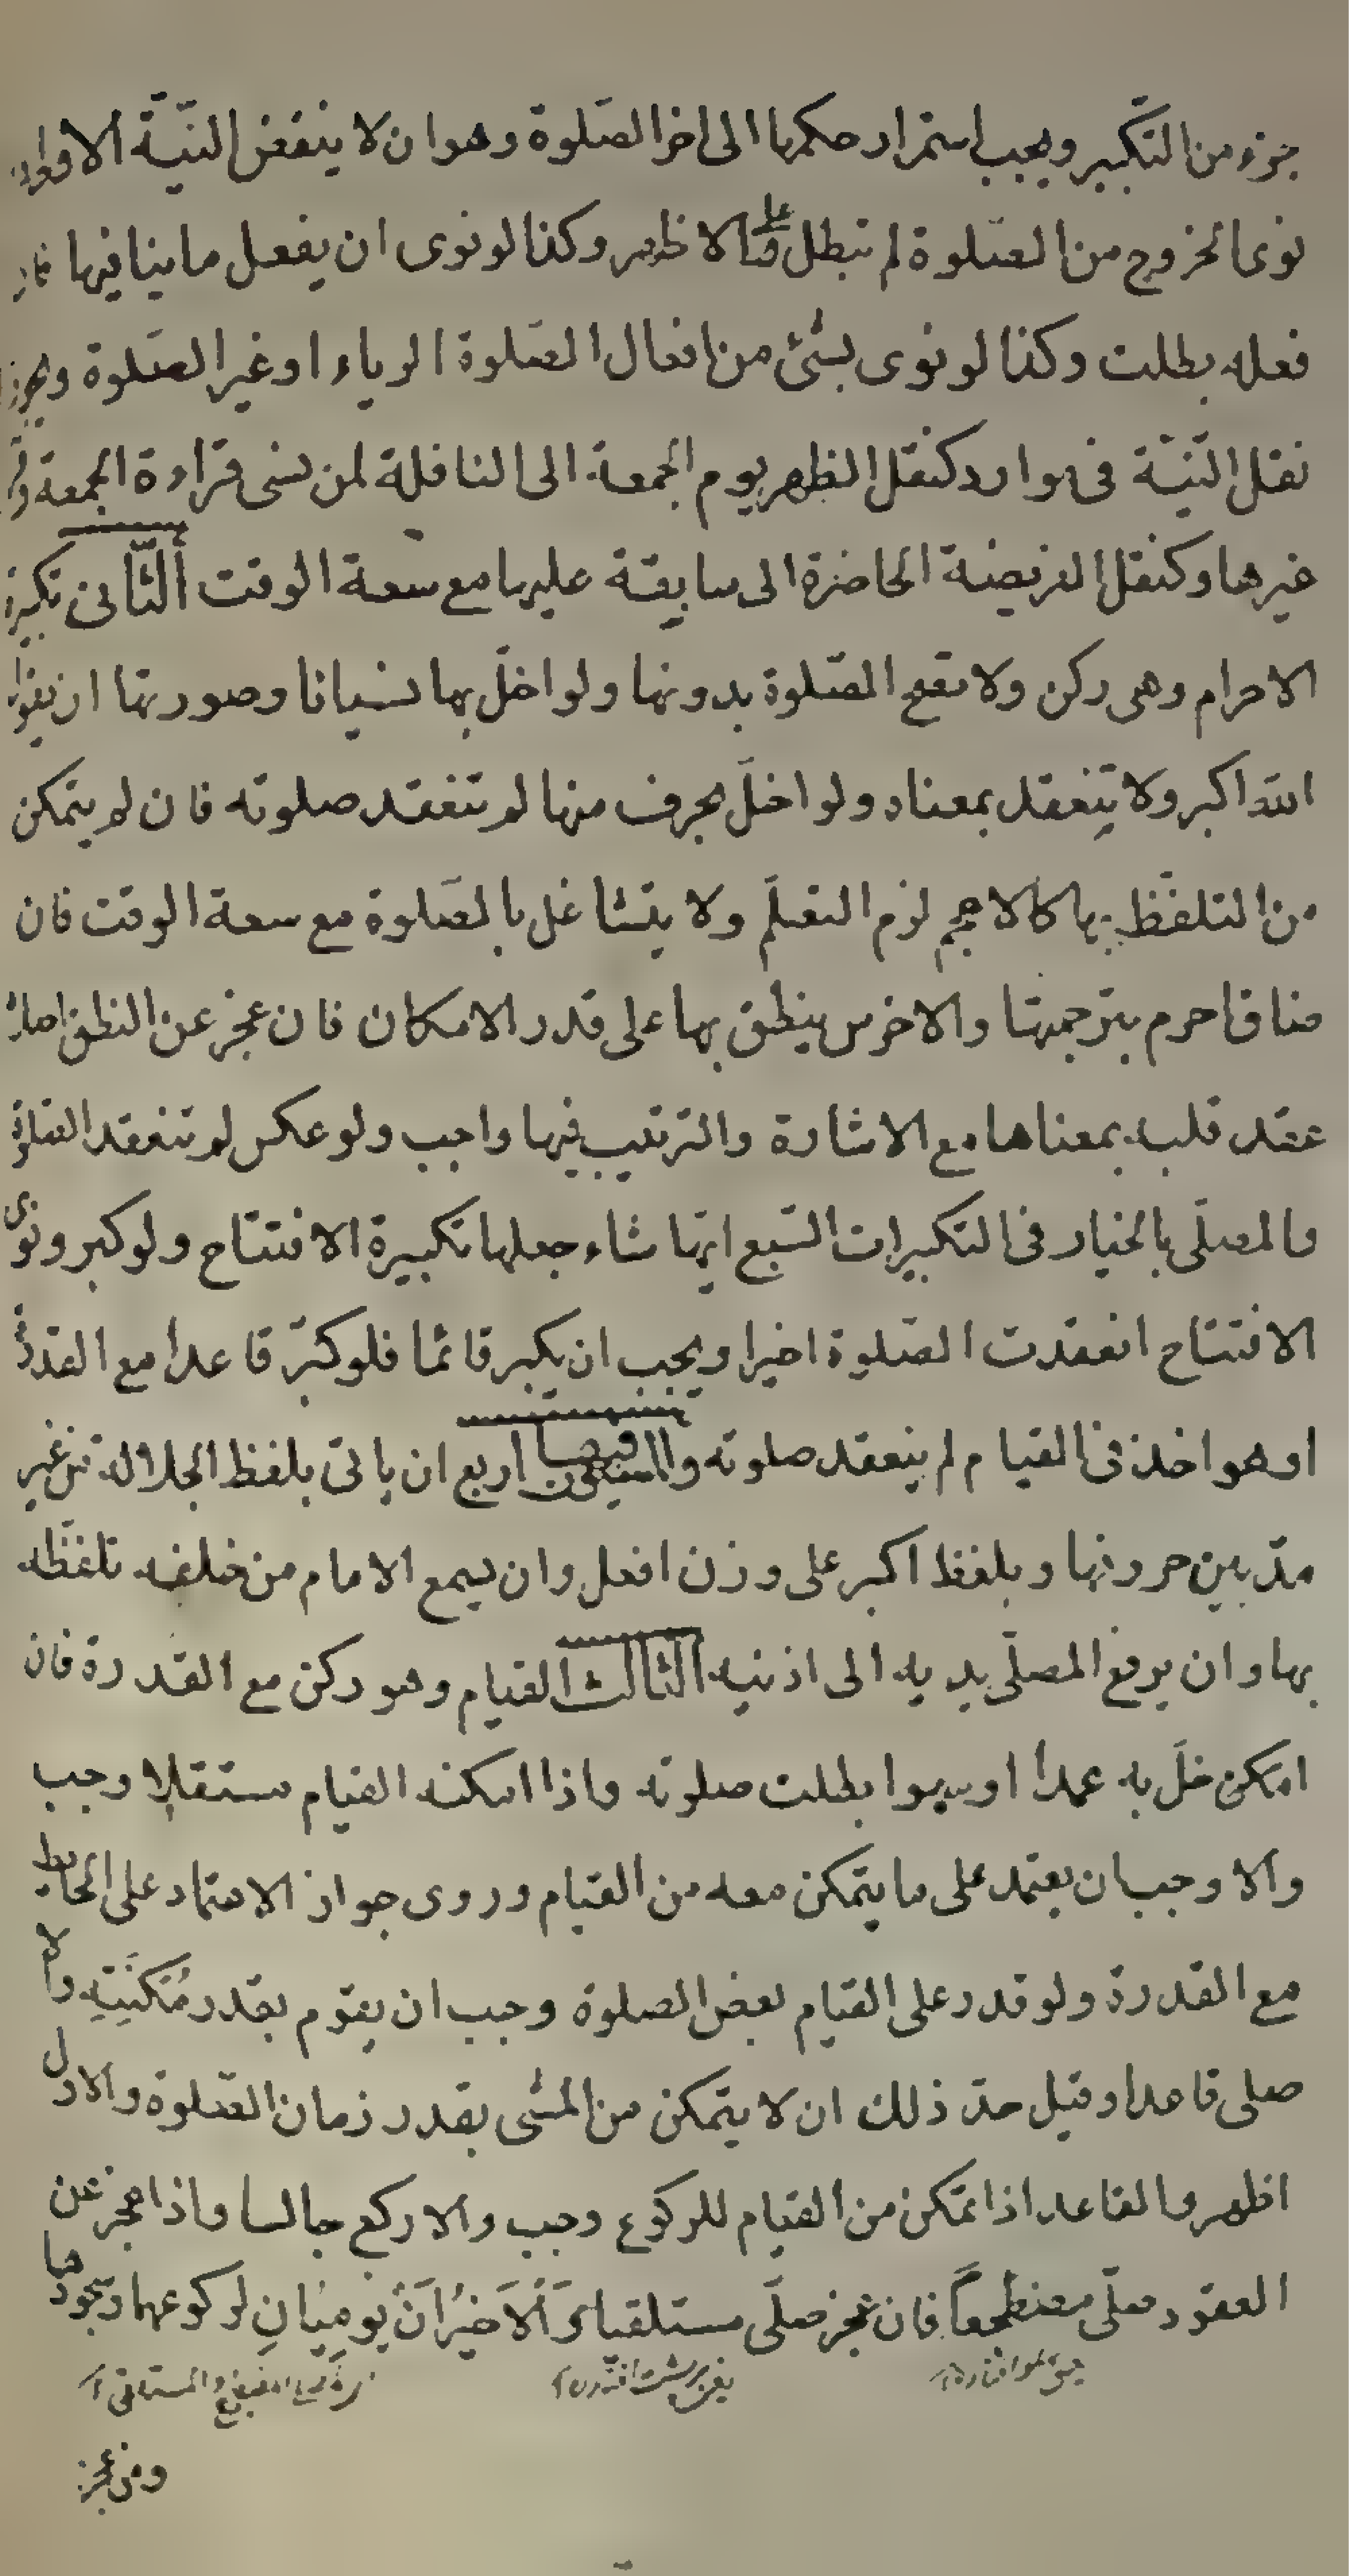 جزء من التكبير ويجب استمرار حكمها الى اخر الصّلوة وهو ان لا ينقض النّيّة الاولى
نوى الخروج من الصّلوة لم تبطل على الاظهر وكذا لو نوى ان يفعل ما ينافيها فان
فعله بطلت وكذا لو نوى بشئ من افعال الصّلوة الرياء او غير الصّلوة ويجوز
نقل النّيّة فى موارد كنقل الظهر يوم الجمعة الى النافلة لمن نسى قراءة الجمعة وقرأ
غيرها وكنقل الفريضة الحاضرة الى سابقة عليها مع سعة الوقت الثّانى تكبيرة
الاحرام وهى ركن ولا تقع الصّلوة بدونها ولو اخلّ بها نسيانا وصورتها ان يقول
الله اكبر ولا تنعقد بمعناه ولو اخلّ بحرف منها لم تنعقد صلوته فان لم يتمكن
من التلفّظ بها كالاعجم لزم التعلّم ولا يتشاغل بالصّلوة مع سعة الوقت فان
ضاق احرم بترجمتها والاخرس ينطق بها على قدر الامكان فان عجز عن النطق اصلا
عقد قلبه بمعناها مع الاشارة والترتيب فيها واجب ولو عكس لم تنعقد الصّلوة
والمصلّى بالخيار فى التكبيرات السّبع ايّها شاء جعلها تكبيرة الافتتاح ولو كبر ونوى
الافتتاح انعقدت الصّلوة اخيرا ويجب ان يكبر قائما فلو كبّر قاعدا مع القدرة
او هو اخذ فى القيام لم ينعقد صلوته والمسنون فيها اربع ان ياتى بلفظ الجلالة من غير
مدّ بين حروفها وبلفظ اكبر على وزن افعل وان يسمع الامام من خلفه تلفّظه
بها وان يرفع المصلّى يديه الى اذنيه الثالث القيام وهو ركن مع القدرة فان
امكن خلّ به عمدا او سهوا بطلت صلوته واذا امكنه القيام مستقلا وجب
والا وجب ان يعتمد على ما يتمكن معه من القيام وروى جواز الاعتماد على الحايط
مع القدرة ولو قدر على القيام بعض الصلوة وجب ان يقوم بقدر مُكنَتِهِ والا
صلى قاعدا وقيل حدّ ذلك ان لا يتمكن من المشى بقدر زمان الصّلوة والاول
اظهر والقاعد اذا تمكن من القيام للركوع وجب والا ركع جالسا واذا عجز عن
القعود صلّى مضطجعاً فان عجز صلّى مستلقيا وَالاَخيرَانَ يوميَانِ لركوعهما وسجودهما
ومن عجز